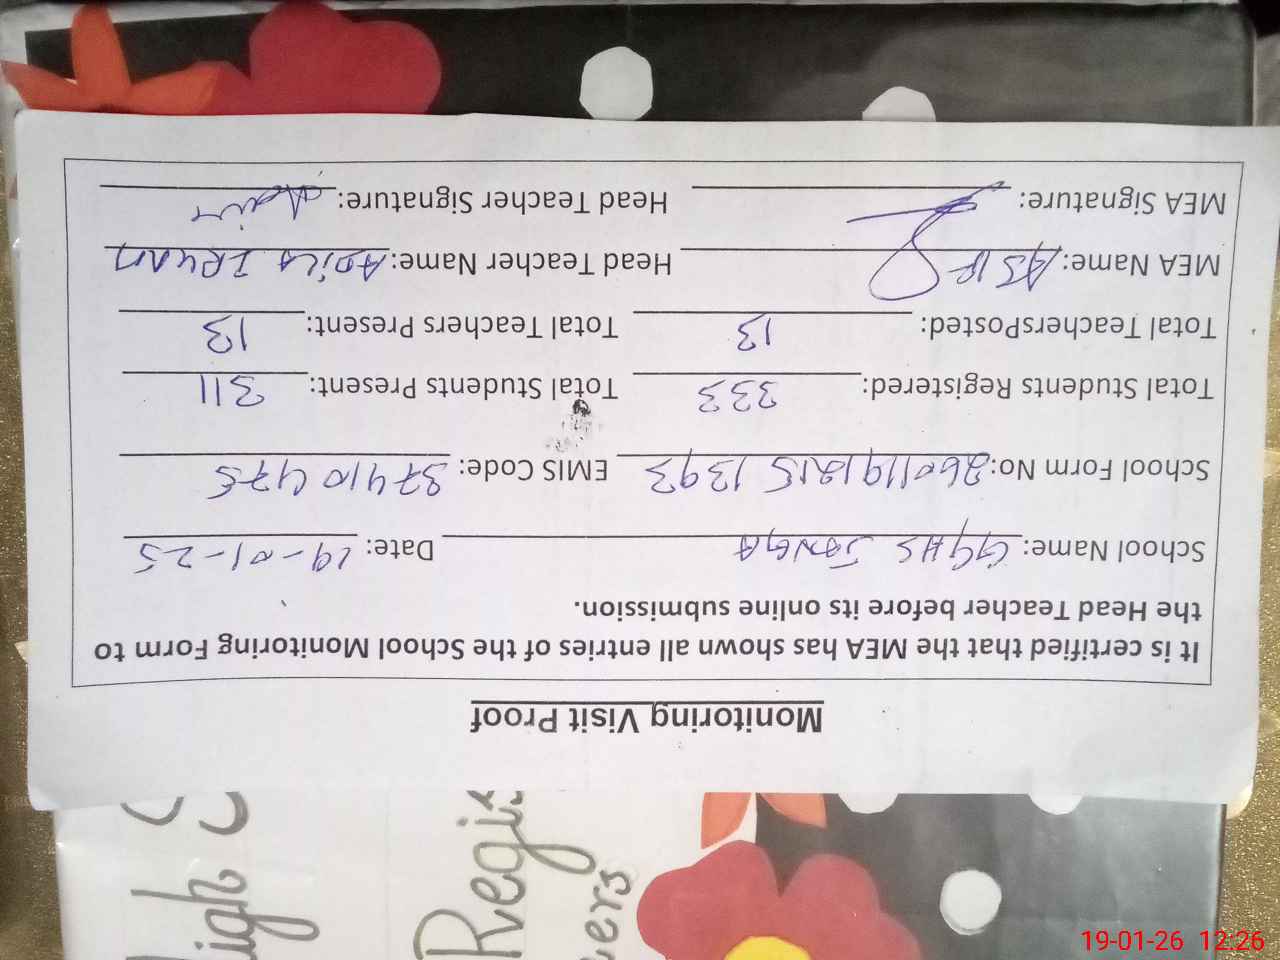 Monitoring Visit Proof
It is certified that the MEA has shown all entries of the School Monitoring Form to
the Head Teacher before its online submission.
School Name: GGHS JANGA Date: 19-01-25
School Form No: 260119121S 1393 EMIS Code: 37410475
Total Students Registered: 333 Total Students Present: 311
Total TeachersPosted: 13 Total Teachers Present: 13
MEA Name: ASIF Head Teacher Name:
MEA Signature: Head Teacher Signature:
High
Regis
ers
19-01-26 12:26